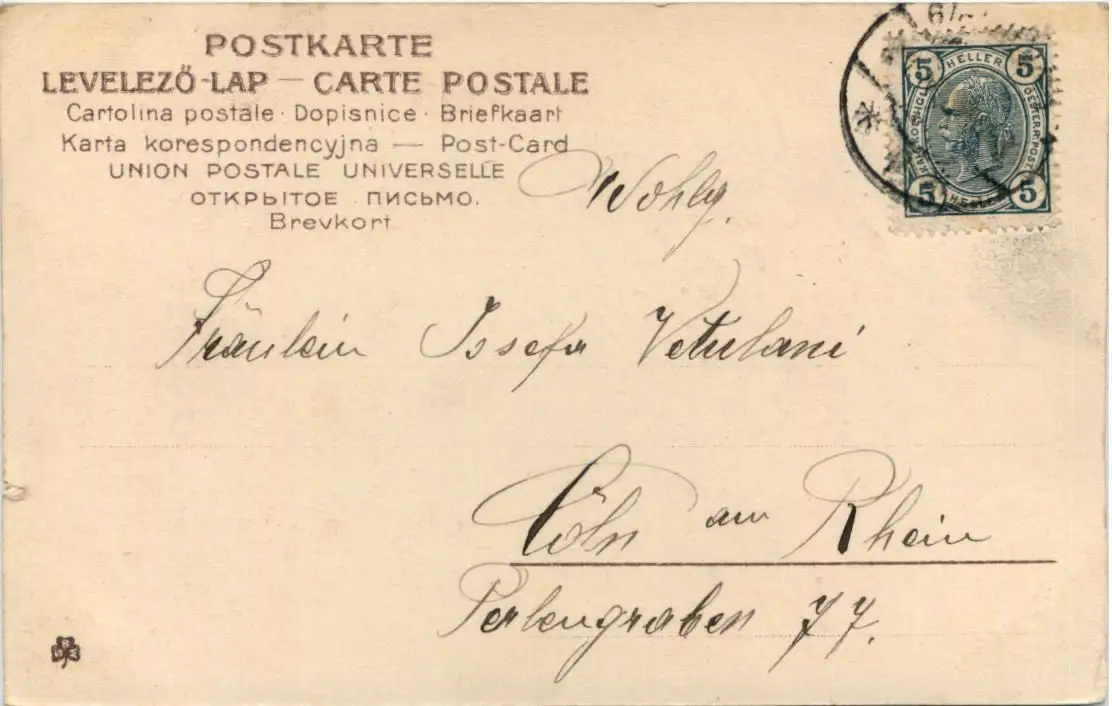 POSTKARTE
LEVELEZŐ-LAP — CARTE POSTALE
Cartolina postale · Dopisnice · Briefkaart
Karta korespondencyjna — Post-Card
UNION POSTALE UNIVERSELLE
ОТКРЫТОЕ ПИСЬМО.
Brevkort
Wohlg.
5 HELLER 5
5 HELLER 5
Fräulein Josefa Vetulani
Cöln am Rhein
Perlengraben 77.